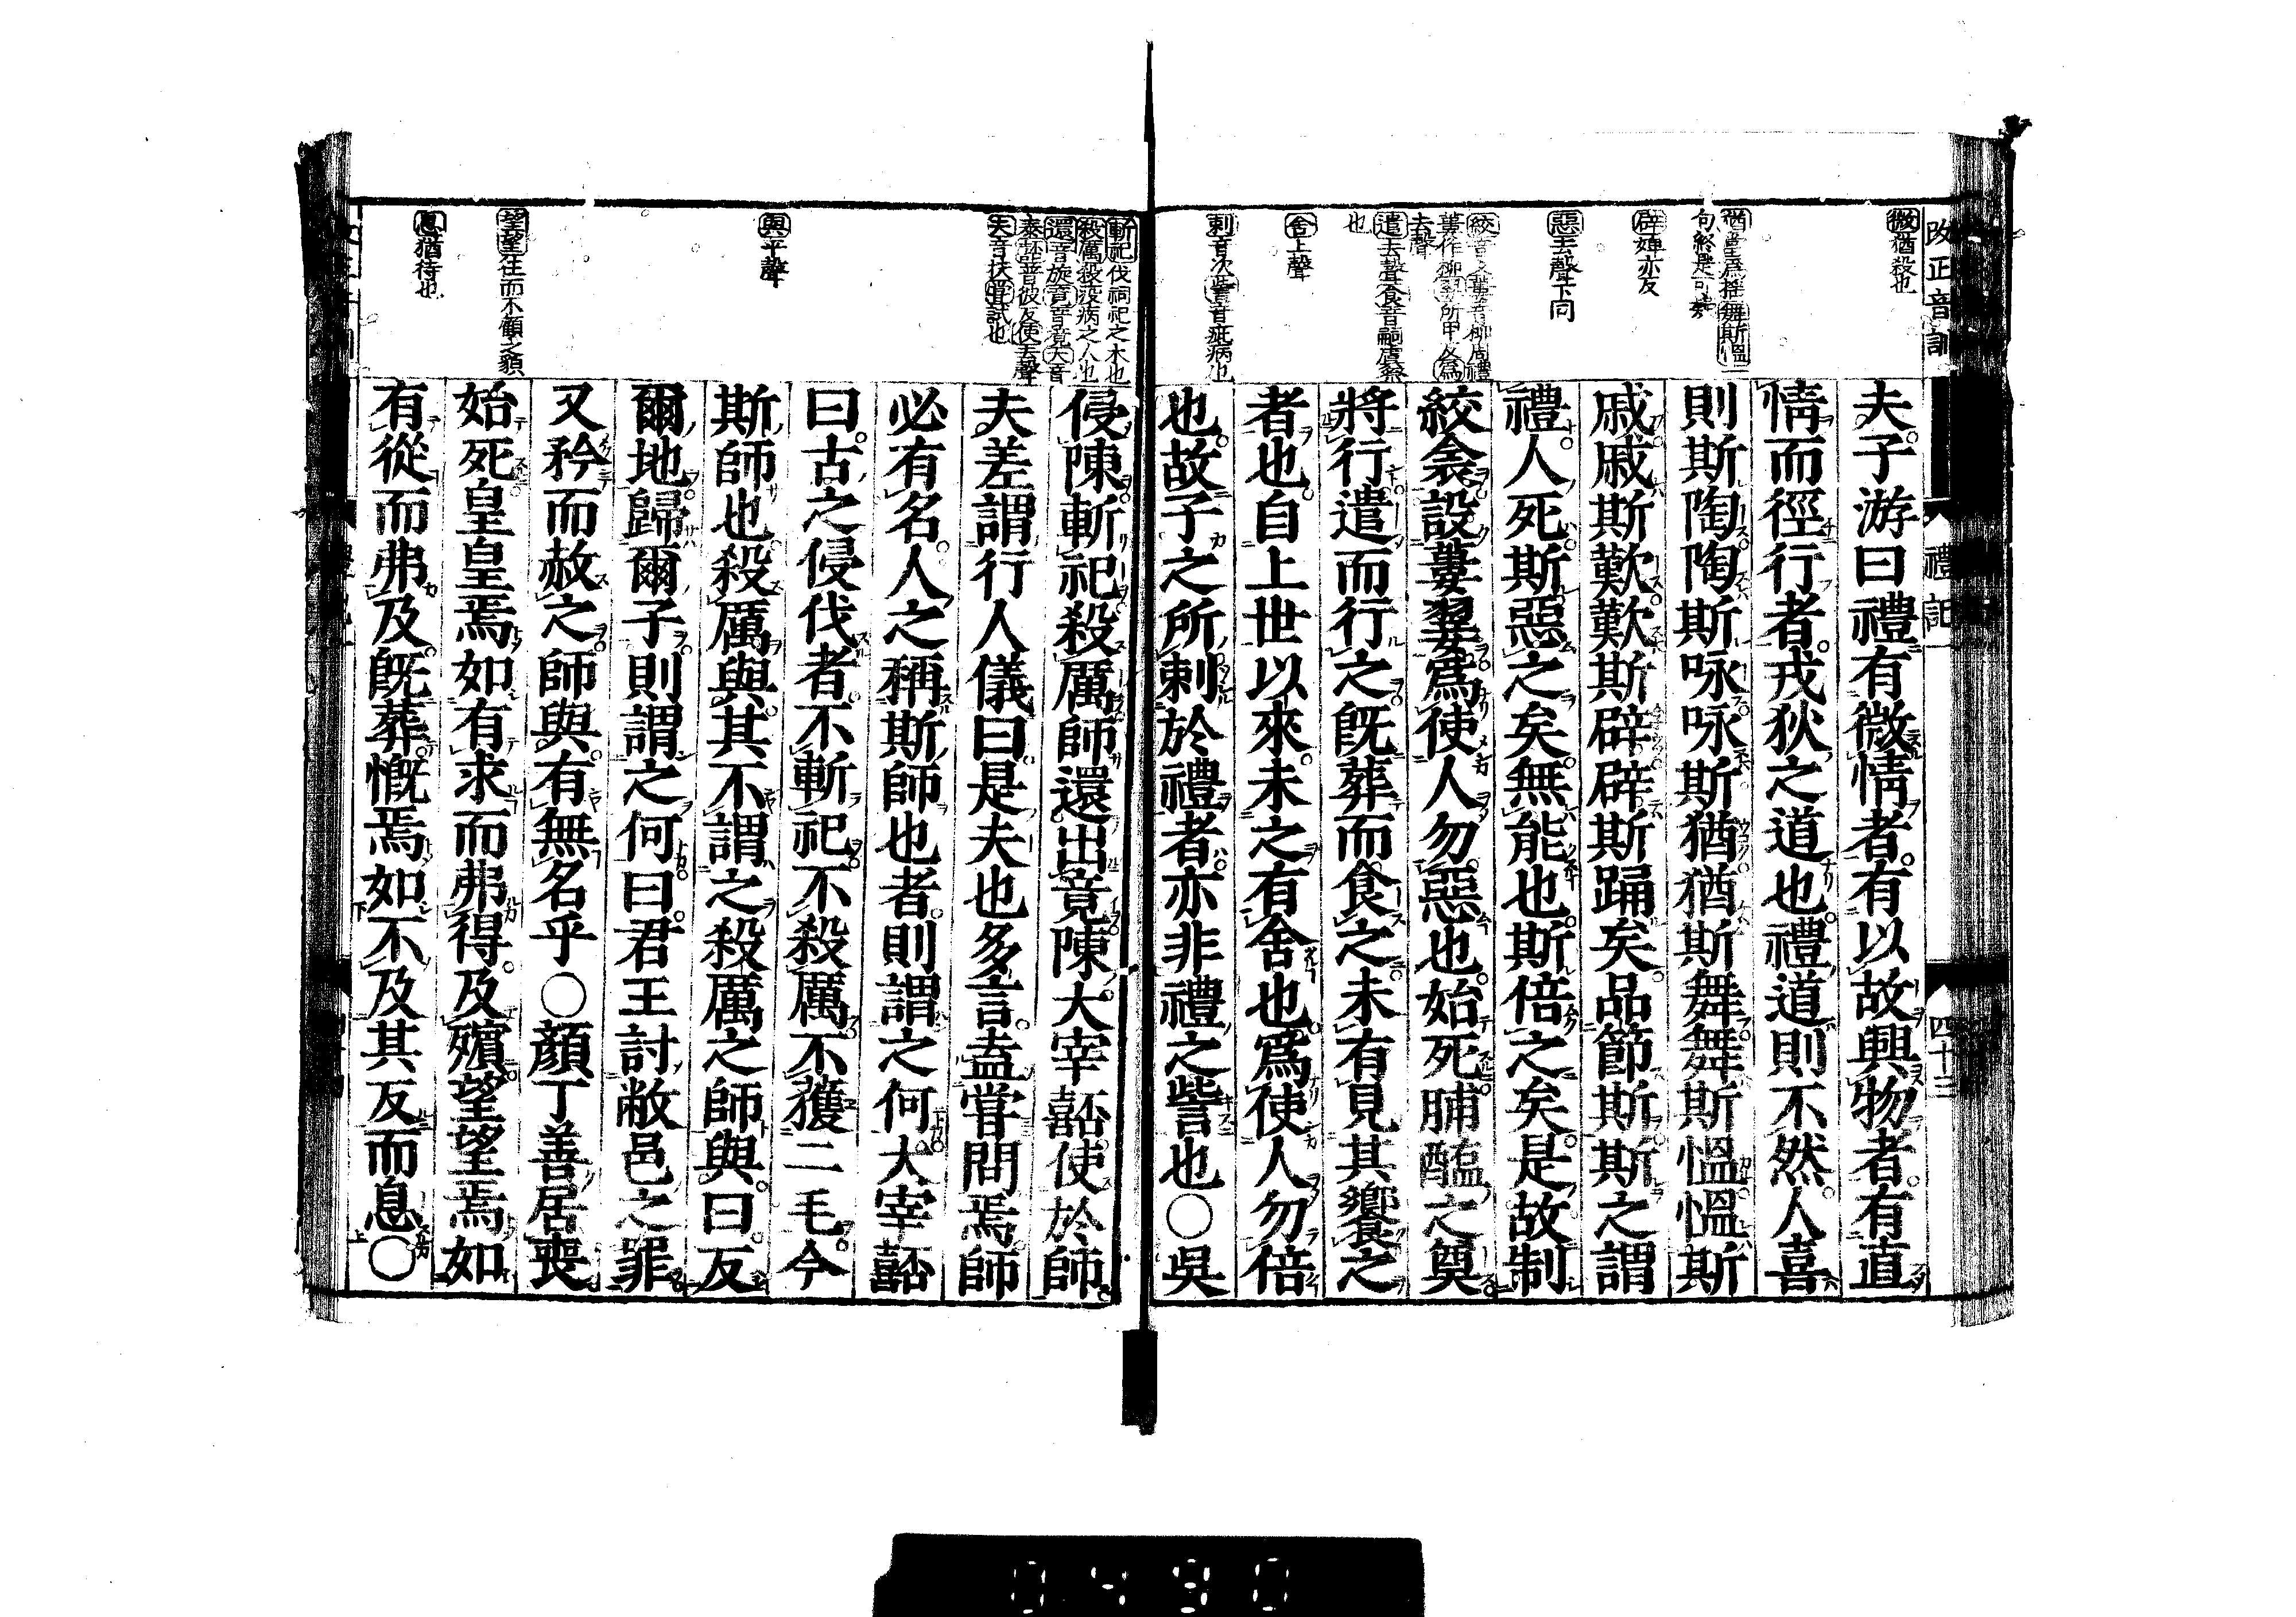 改正音訓
禮記一
四十三
微猶殺也
猶當爲搖舞斯慍一
句終是可嫌
辟婢亦反
惡去聲下同
絞音爻蔞音柳周禮
蔞作柳翣所甲反爲
去聲
遣去聲食音嗣虞祭
也
舍上聲
刺音次訾音疵病也
夫子游曰禮有微情者有以故興物者有直
情而徑行者戎狄之道也禮道則不然人喜
則斯陶陶斯咏咏斯猶猶斯舞舞斯慍慍斯
戚戚斯歎歎斯辟辟斯踊矣品節斯斯之謂
禮人死斯惡之矣無能也斯倍之矣是故制
絞衾設蔞翣爲使人勿惡也始死脯醢之奠
將行遣而行之既葬而食之未有見其饗之
者也自上世以來未之有舍也爲使人勿倍
也故子之所刺於禮者亦非禮之訾也〇吳
斬祀伐祠祀之木也
殺厲殺疫病之人也
還音旋竟音境大音
泰嚭普彼反使去聲
夫音扶嘗試也
與平聲
望望往而不顧之貌
息猶待也
侵陳斬祀殺厲師還出竟陳大宰嚭使於師
夫差謂行人儀曰是夫也多言盍嘗問焉師
必有名人之稱斯師也者則謂之何大宰嚭
曰古之侵伐者不斬祀不殺厲不獲二毛今
斯師也殺厲與其不謂之殺厲之師與曰反
爾地歸爾子則謂之何曰君王討敝邑之罪
又矜而赦之師與有無名乎〇顏丁善居喪
始死皇皇焉如有求而弗得及殯望望焉如
有從而弗及既葬慨焉如不及其反而息〇
0490